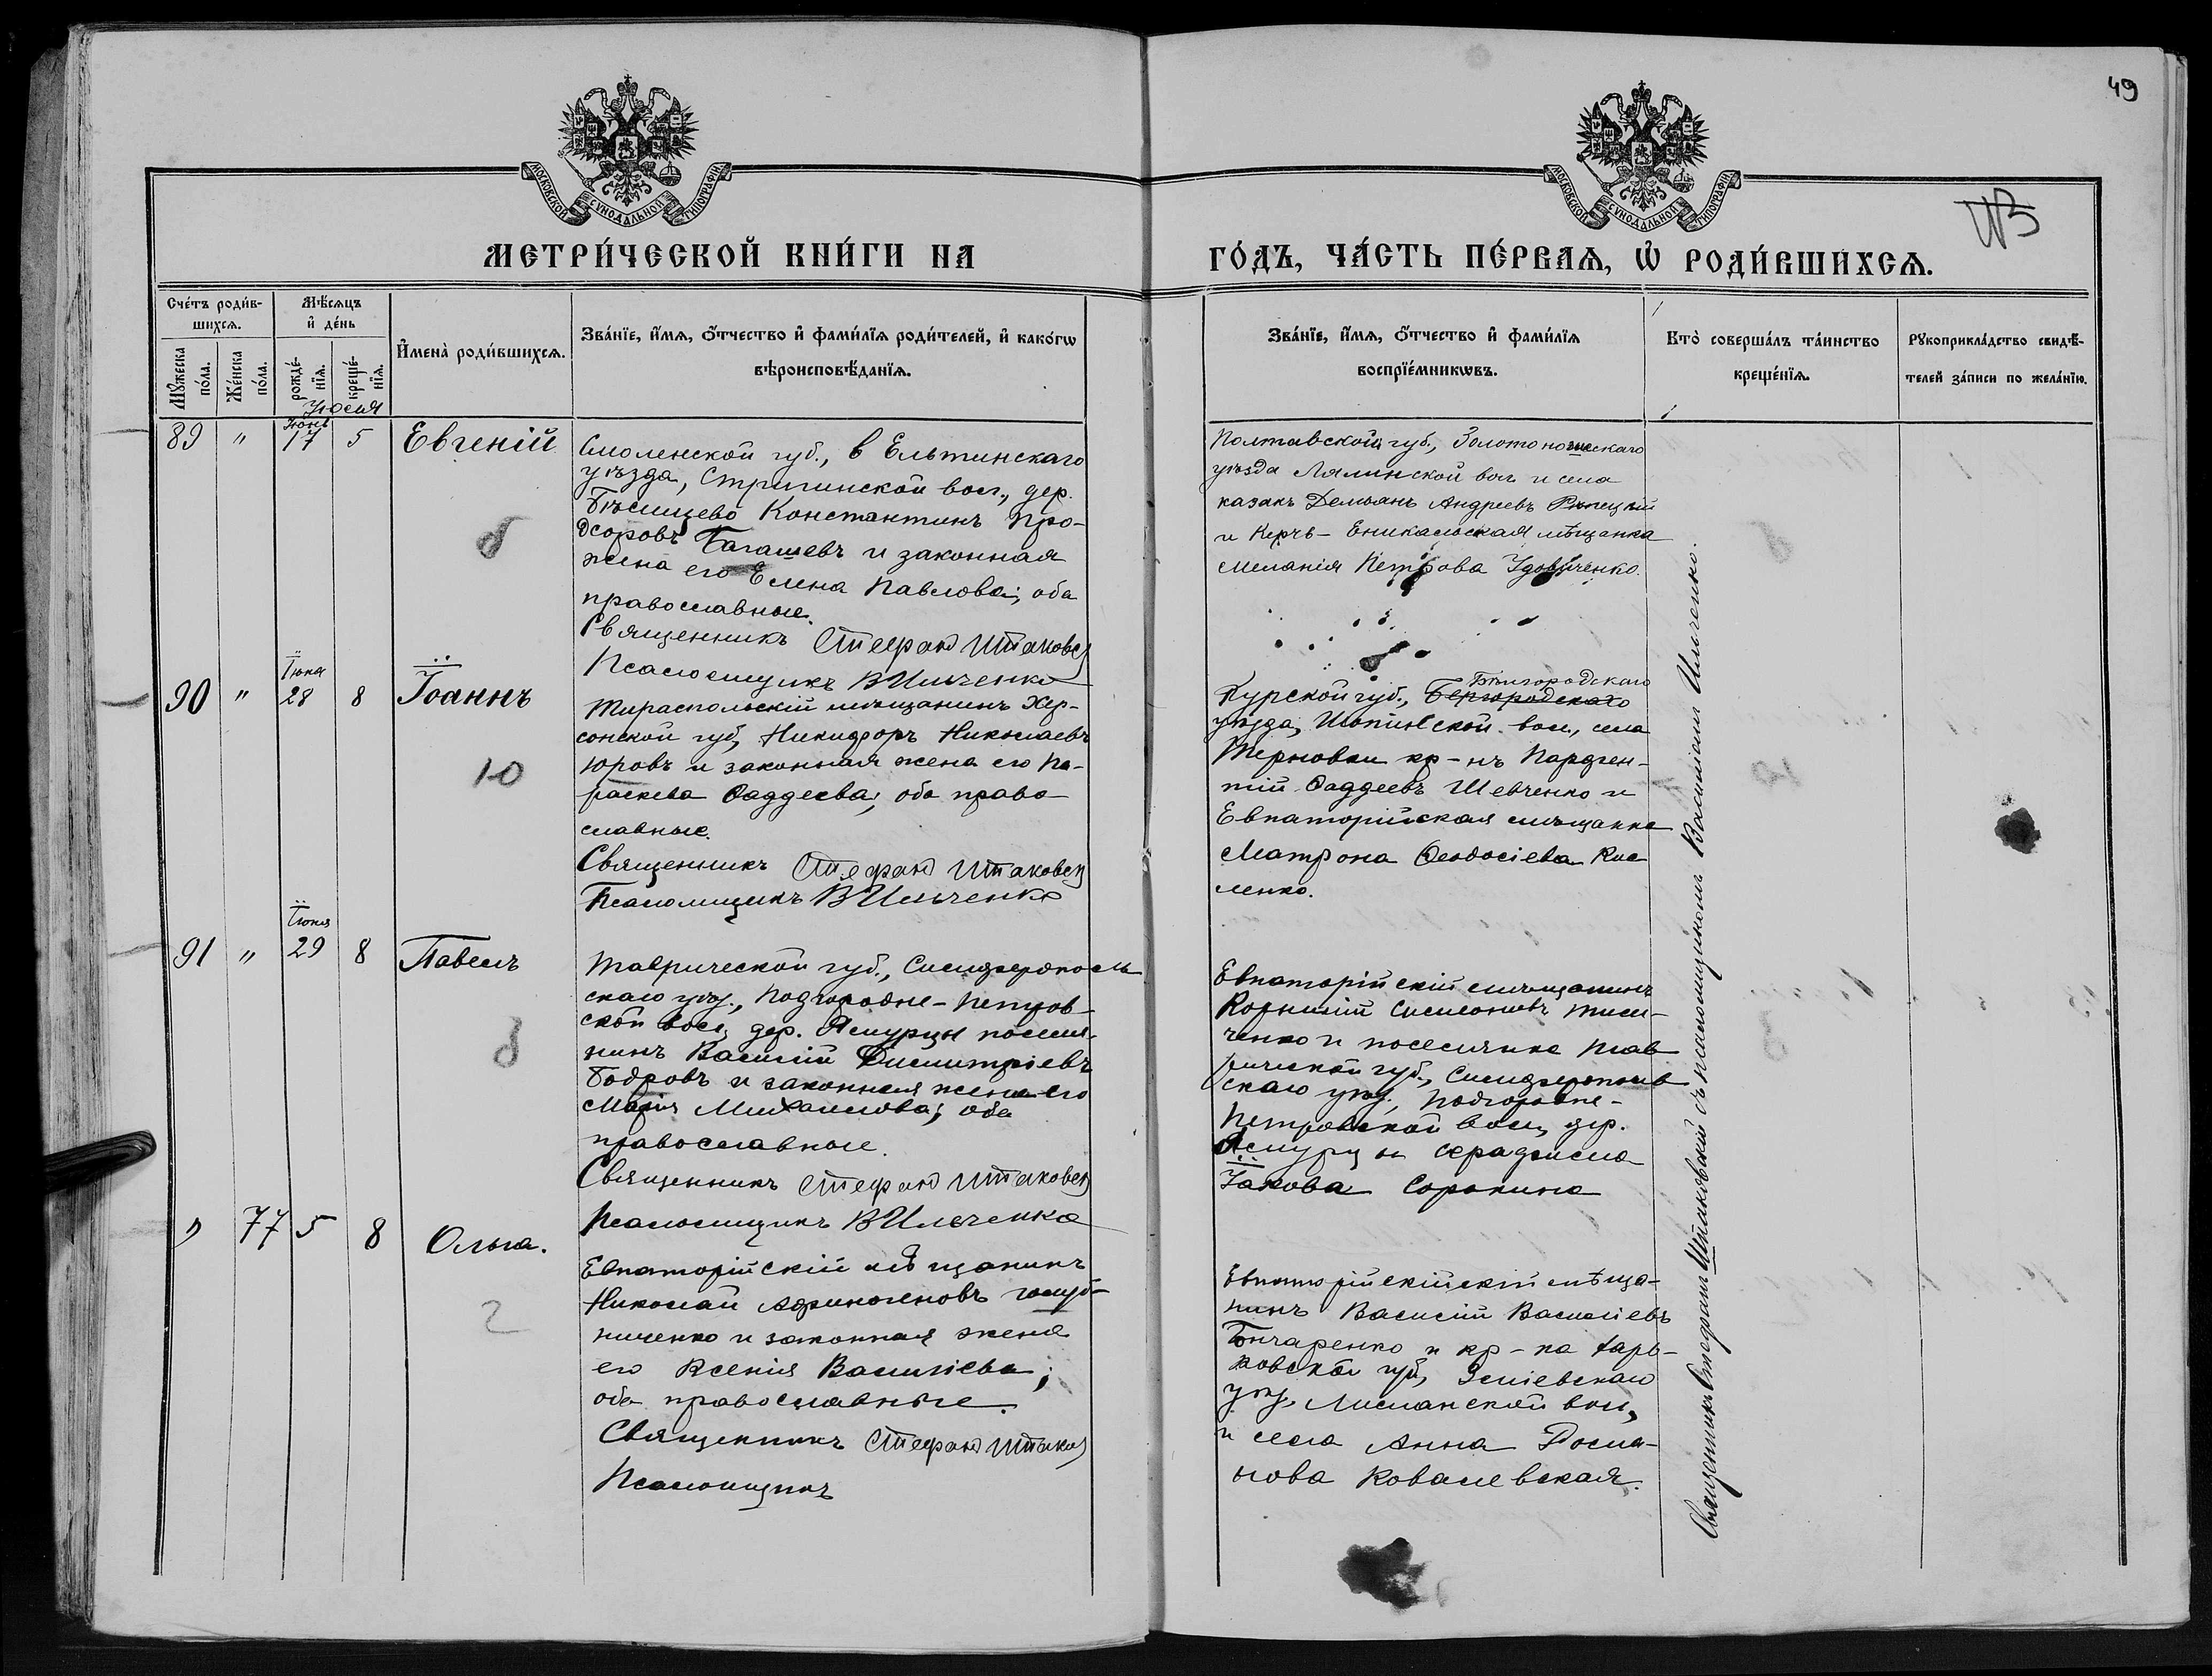 49
МОСКОВСКОЙ СѴНОДАЛЬНОЙ ТИПОГРАФІИ
МОСКОВСКОЙ СѴНОДАЛЬНОЙ ТИПОГРАФІИ
МЕТРИ́ЧЕСКОЙ КНИ́ГИ НА
ГО́ДЪ, ЧА́СТЬ ПЕ́РВАЯ, Ѡ РОДИ́ВШИХСЯ.
Сче́тъ роди́в-
шихся.
Мѣсяцъ
и де́нь
Мꙋжеска
по́ла.
Же́нска
по́ла.
рожде́-
нїя.
креще́-
нїя.
Имена̀ роди́вшихся.
Зва́нїе, и́мя, о́тчество и фами́лїя роди́телей, и како́гѡ
вѣроисповѣ́данїя.
Зва́нїе, и́мя, о́тчество и фами́лїя
воспрїе́мникѡвъ.
Кто̀ соверша́лъ та́инство
креще́нїя.
Рꙋкоприкла́дство свидѣ́-
телей за́писи по жела́нїю.
Іюля
89 " Іюнь 17 5 Евгеній
Смоленской губ., в Ельнинскаго
уѣзда, Стригинской вол., дер.
Константинъ
Гагашевъ и законная
жена его Елена Павлова; оба
православные.
Священникъ Стефанъ Штаковск
Псаломщикъ В Ильченко
Полтавской губ., Золотоношскаго
уѣзда Лялинской вол. и села
казакъ Демьянъ Андреевъ
и Керчь-Еникальская мѣщанка
Меланія Петрова Удовиченко.
90 " Іюня 28 8 Іоаннъ
Ю
Тираспольскій мѣщанинъ Хер-
сонской губ, Никифоръ Николаевъ
Юровъ и законная жена его Па-
раскева Фаддеева; оба право-
славные.
Священникъ Стефанъ Штаковск
Псаломщикъ В Ильченко
Бѣлгородскаго
Курской губ., Бергородскаго
уѣзда, Шопинской вол., села
Терновки кр-нъ Парфен-
тій Фаддеевъ Шевченко и
Евпаторійская мѣщанка
Матрона Феодосіева Кис
ленко.
91 " Іюня 29 8 Павелъ
Таврической губ., Симферополь
скаго уѣз., Подгородне-Петров-
ской вол, дер. поселя-
нинъ Василій Димитріевъ
Бодровъ и законная жена его
Марія Михаилова; оба
православные.
Священникъ Стефанъ Штаковск
Псаломщикъ В Ильченко
Евпаторійскій мѣщанинъ
Корнилій Симеоновъ Тим-
ченко и поселянка Тав
рической губ., Симферополь
скаго уѣз., Подгородне-
Петровской вол, дер.
Серафима
Іакова Сорокина
" 77 5 8 Ольга.
Евпаторійскій мѣщанинъ
Николай Афиногеновъ Голуб-
ниченко и законная жена
его Ксенія Васильева;
оба православные.
Священникъ Стефанъ Штаков
Псаломщикъ
Евпаторійскійскій мѣща-
нинъ Василій Васильевъ
Гончаренко и кр-ка Харь-
ковской губ, Зміевскаго
уѣз, Лиманской вол,
и села Анна Рома-
нова Ковалевская.
Священникъ Стефанъ Штаковскій съ псаломщикомъ Василіемъ Ильченко.